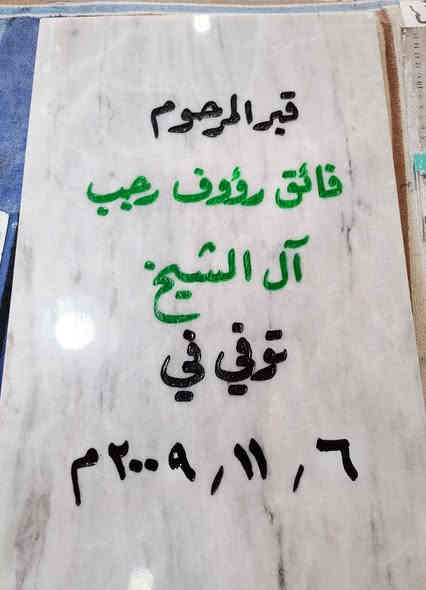 قبر المرحوم
فائق رؤوف رجب
آل الشيخ
توفي في
٦ / ١١ / ٢٠٠٩ م